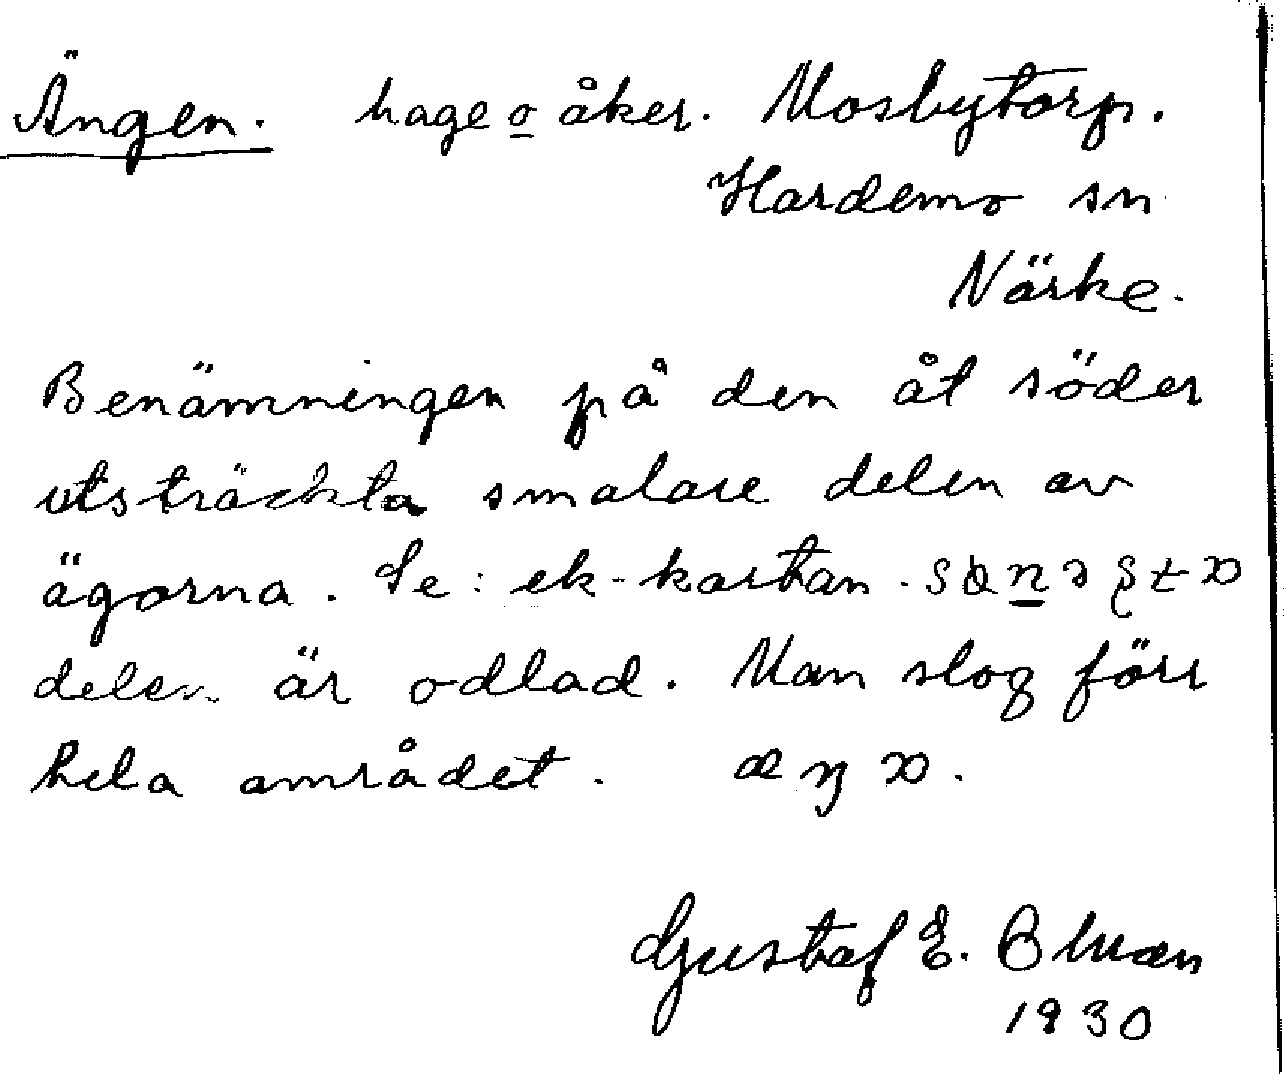 Ängen. hage o åker. Mosbytorp.
Hardemo sn
Närke.
Benämningen på den åt söder
utsträckta smalare delen av
ägorna. Se: ek-kartan.
delen är odlad. Man slog förr
hela området.
Gustaf E.
1930